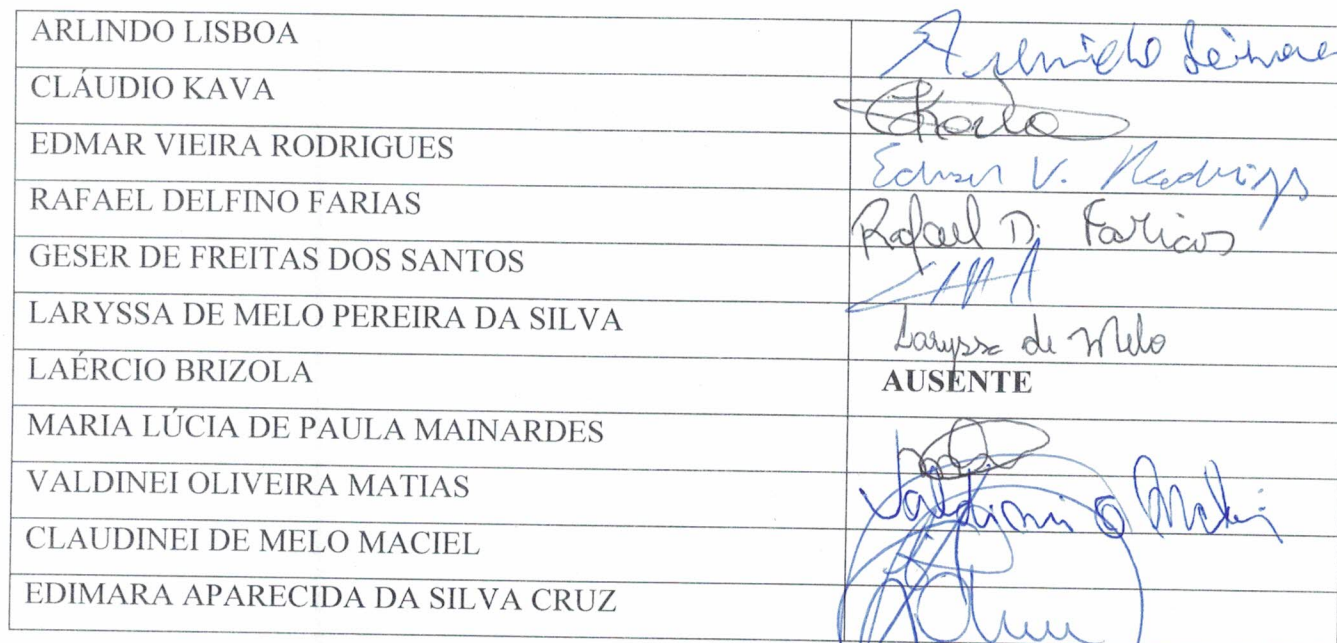 ARLINDO LISBOA
CLÁUDIO KAVA
EDMAR VIEIRA RODRIGUES
Edmar V. Rodrigs
RAFAEL DELFINO FARIAS
Rafael D. Farias
GESER DE FREITAS DOS SANTOS
LARYSSA DE MELO PEREIRA DA SILVA
Laryssa de Melo
LAÉRCIO BRIZOLA
AUSENTE
MARIA LÚCIA DE PAULA MAINARDES
VALDINEI OLIVEIRA MATIAS
CLAUDINEI DE MELO MACIEL
EDIMARA APARECIDA DA SILVA CRUZ